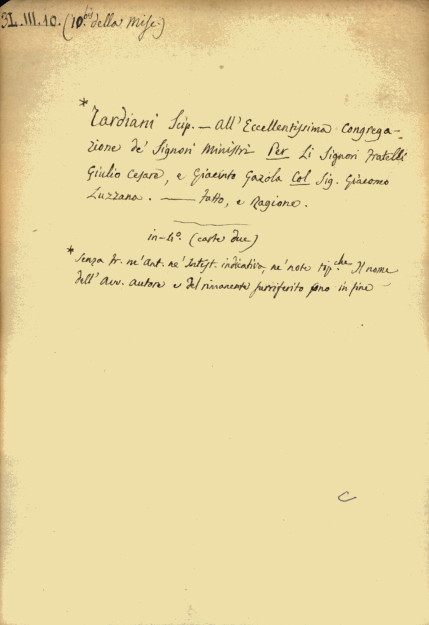 3L.III.10. (10.bis della Misc.)
* Tardiani Scip. — All'Eccellentissima Congrega-
zione de' Signori Ministri Per Li Signori Fratelli
Giulio Cesare, e Giacinto Gazola Col Sig. Giacomo
Luzzana. — Fatto, e Ragione.
in-4°. (carte due)
* Senza fr. ne' Ant. ne' Intest. indicativa, ne' note tip.che Il nome
dell' Avv. autore e del rimanente surriferito sono in fine
C